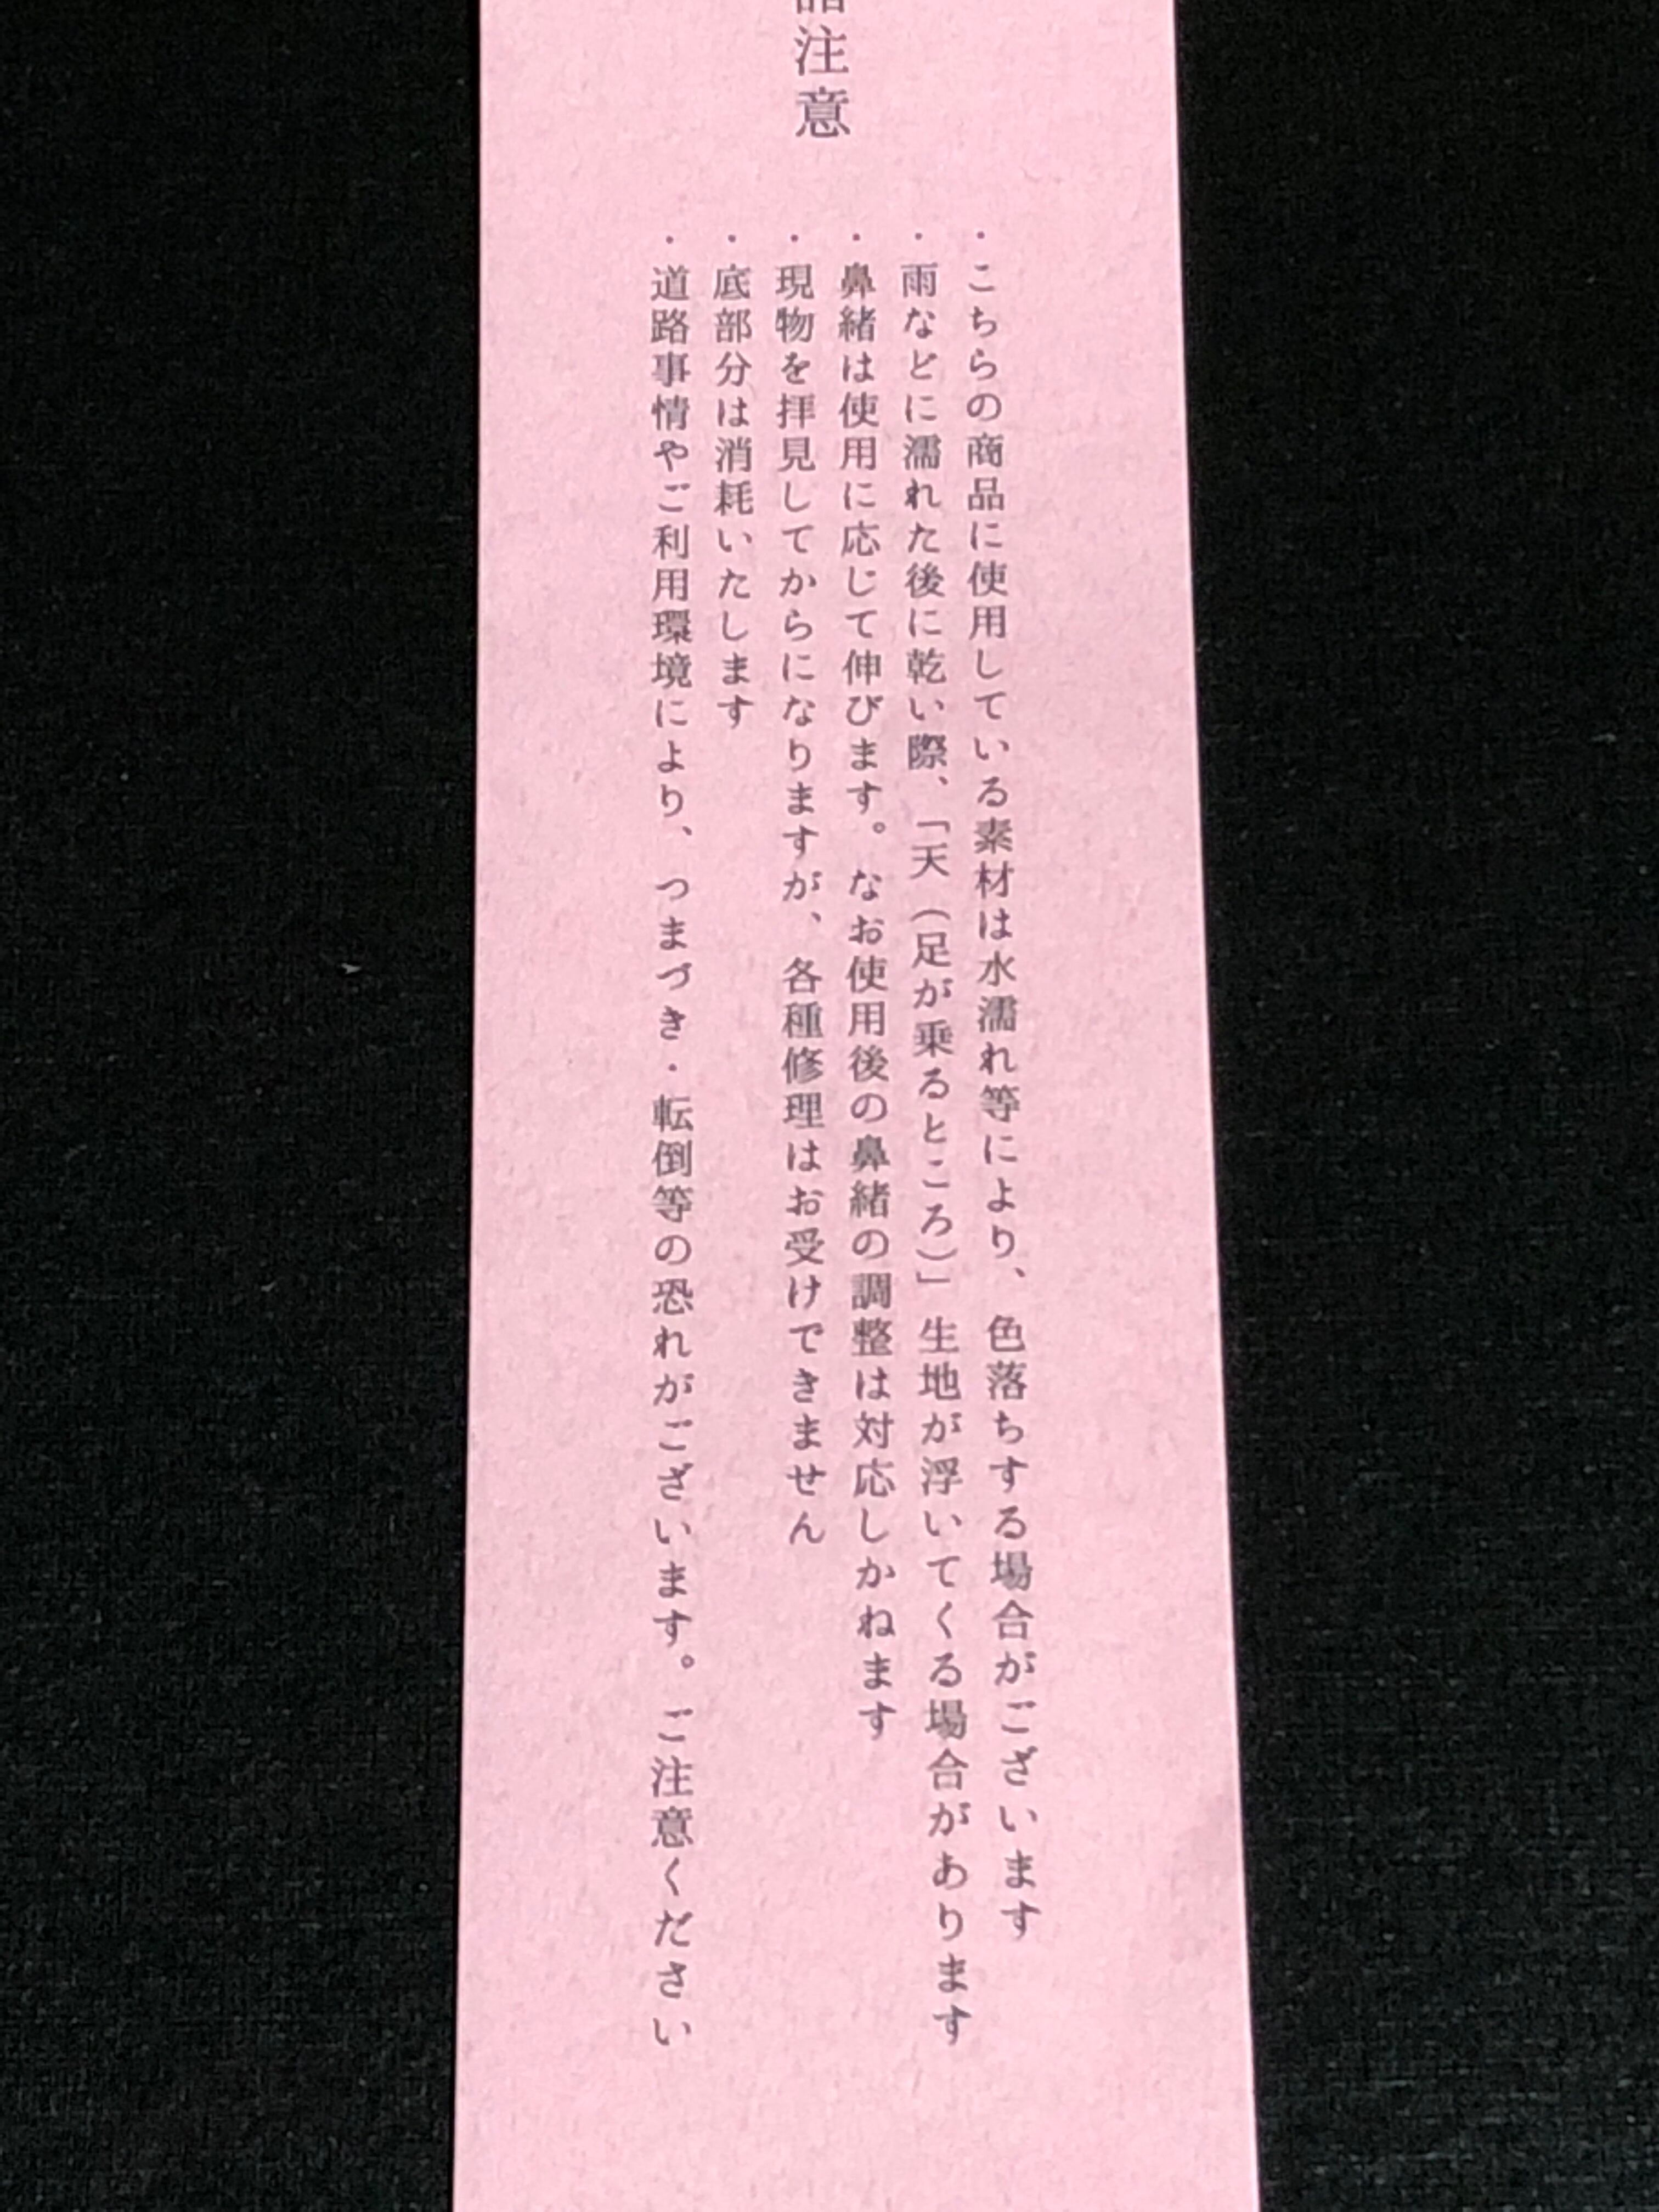 注意
・こちらの商品に使用している素材は水濡れ等により、色落ちする場合がございます
・雨などに濡れた後に乾い際、「天（足が乗るところ）」生地が浮いてくる場合があります
・鼻緒は使用に応じて伸びます。なお使用後の鼻緒の調整は対応しかねます
・現物を拝見してからになりますが、各種修理はお受けできません
・底部分は消耗いたします
・道路事情やご利用環境により、つまづき・転倒等の恐れがございます。ご注意ください